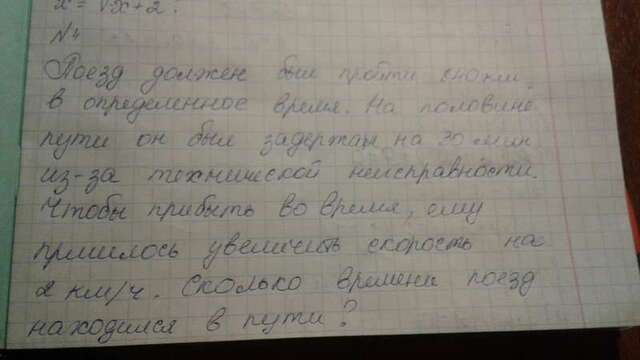 x = √x+2 .
№4
Поезд должен был пройти 840 км.
в определенное время. На половине
пути он был задержан на 30 мин
из-за технической неисправности.
Чтобы прибыть во время, ему
пришлось увеличить скорость на
2 км/ч. Сколько времени поезд
находился в пути?